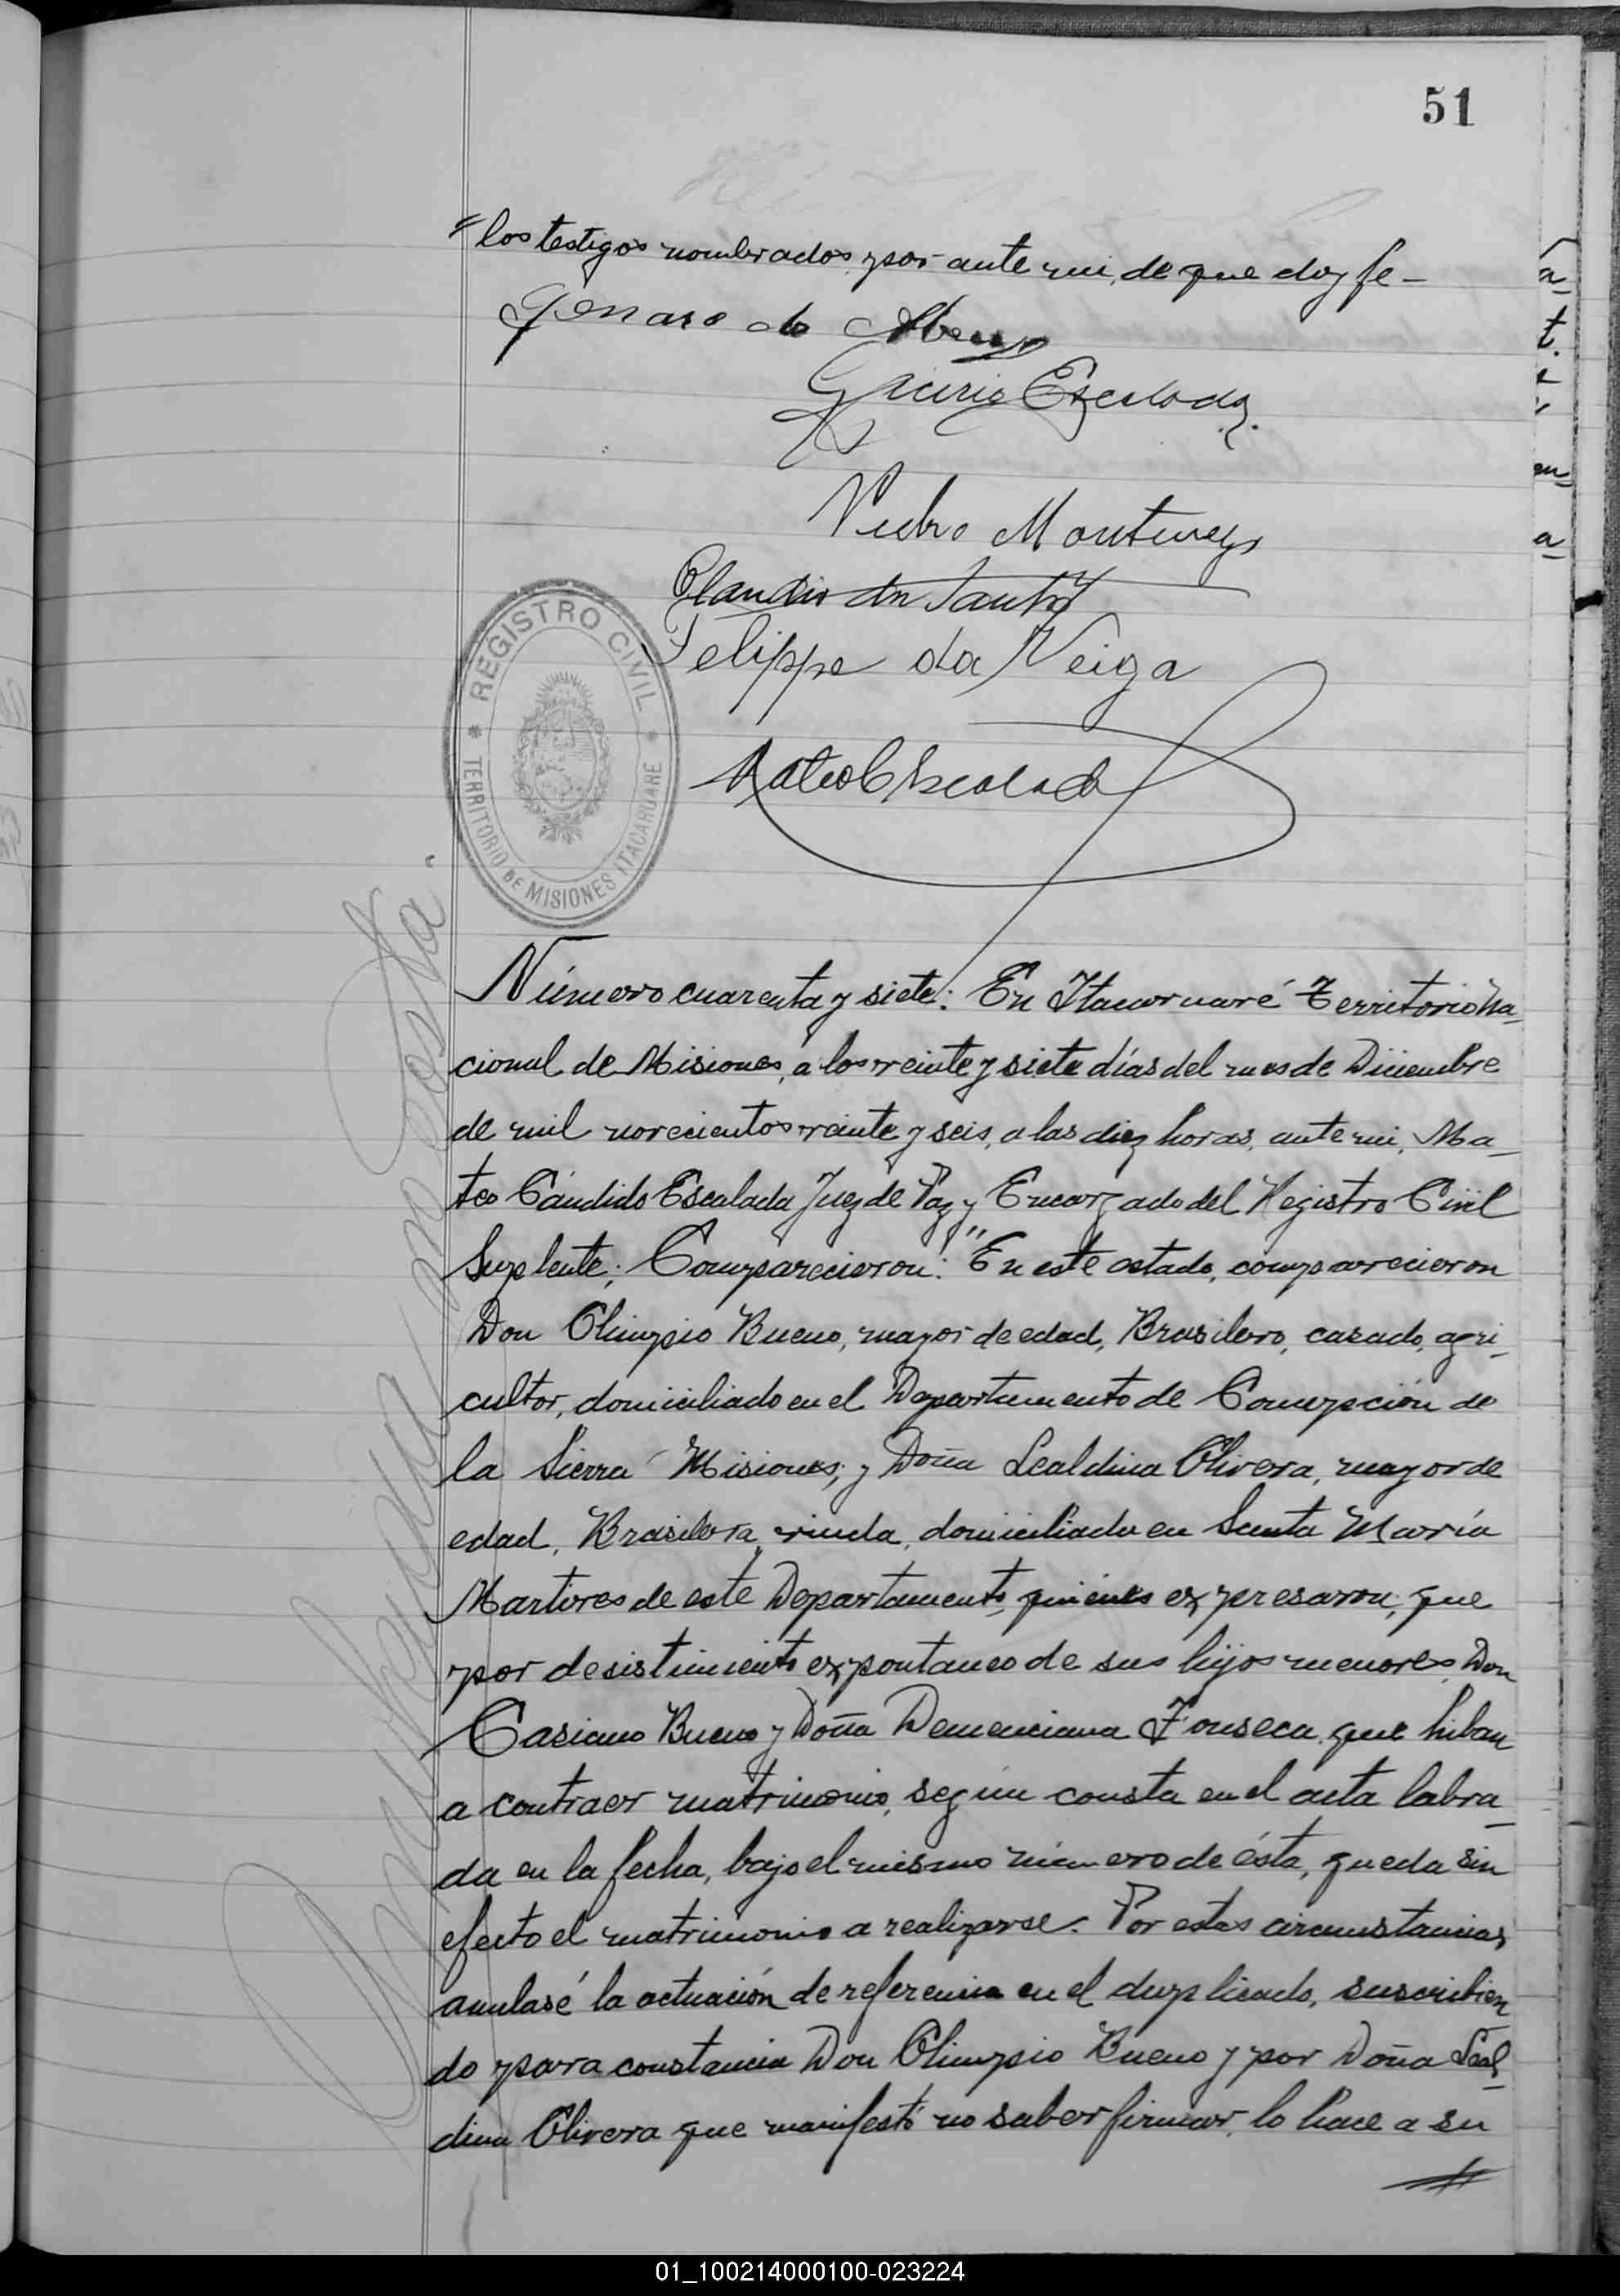 51
"los testigos nombrados, por ante mi, de que doy fe-
Genaro de Abreu
Glicerio Escalada
Pedro
Claudio dos Santos
Felippe da Veiga
Mateo C Escalada
REGISTRO CIVIL
TERRITORIO DE MISIONES ITACARUARE
Número cuarenta y siete: En Itacaruaré Territorio Na-
cional de Misiones, a los veinte y siete días del mes de Diciembre
de mil novecientos veinte y seis, a las diez horas, ante mi, Ma-
teo Cándido Escalada Juez de Paz y Encargado del Registro Civil
Suplente; Comparecieron: "En este estado, comparecieron
Don Olimpio Bueno, mayor de edad, Brasilero, casado, agri-
cultor, domiciliado en el Departamento de Concepción de
la Sierra Misiones; y Doña Lealdina Olivera, mayor de
edad, Brasilera, viuda, domiciliada en Santa María
Martires de este Departamento, quienes expresaron; que
por desistimiento expontaneo de sus hijos menores, Don
Casiano Bueno y Doña Demenciana Fonseca que hiban
a contraer matrimonio, según consta en el acta labra-
da en la fecha, bajo el mismo número de ésta, queda sin
efecto el matrimonio a realizarse. Por estas circunstancias,
anulasé la actuación de referencia en el duplicado, suscribien
do para constancia Don Olimpio Bueno y por Doña Leal-
dina Olivera que manifestó no saber firmar, lo hace a su
01_100214000100-023224